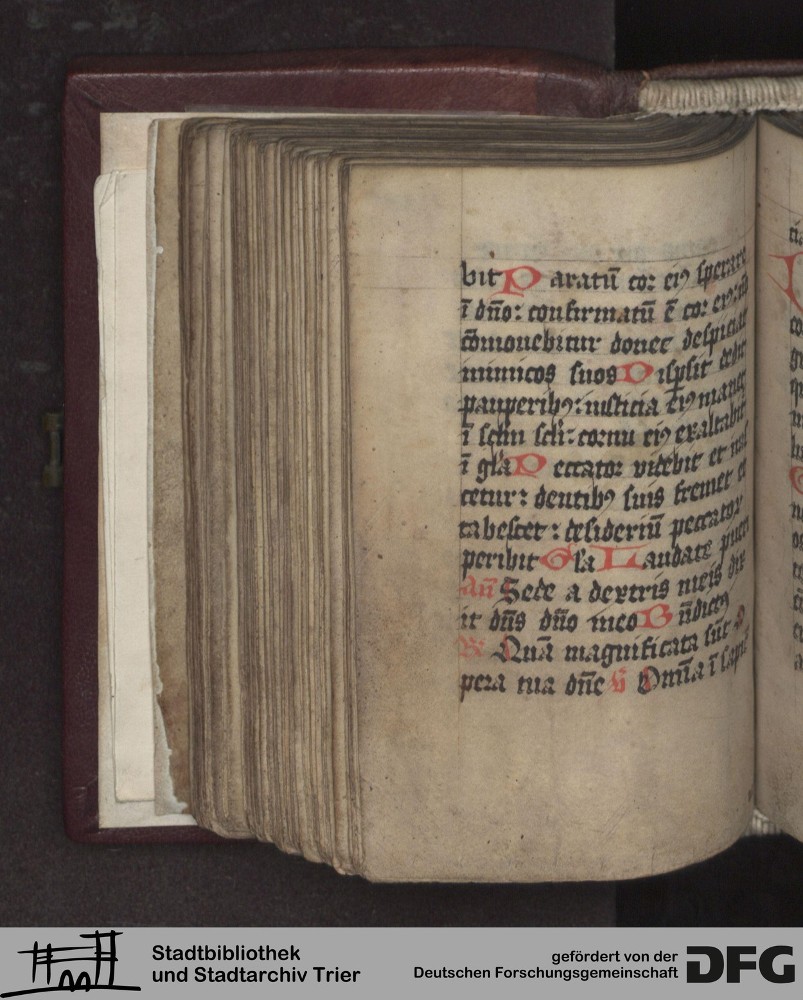 bit Paratū cor eiꝯ sperare
ī dño: confirmatū ē cor eiꝯ: nō
cōmouebitur donec despiciat
inimicos suos Dispsit dedit
pauperibꝯ: iusticia eiꝯ manet
ī sclm scli: cornu eiꝯ exaltabit
ī gľa Peccator videbit et iras
cetur: dentibꝯ suis fremet et
tabescet: desideriū peccatoꝝ
peribit Gľa Laudate pueri
Añ Sede a dextris meis dix
it dñs dño meo Bñdicꝯ
R Quā magnificata sūt o
pera tua dñe V Omīa ī sapiē
Stadtbibliothek
und Stadtarchiv Trier
gefördert von der
Deutschen Forschungsgemeinschaft
DFG